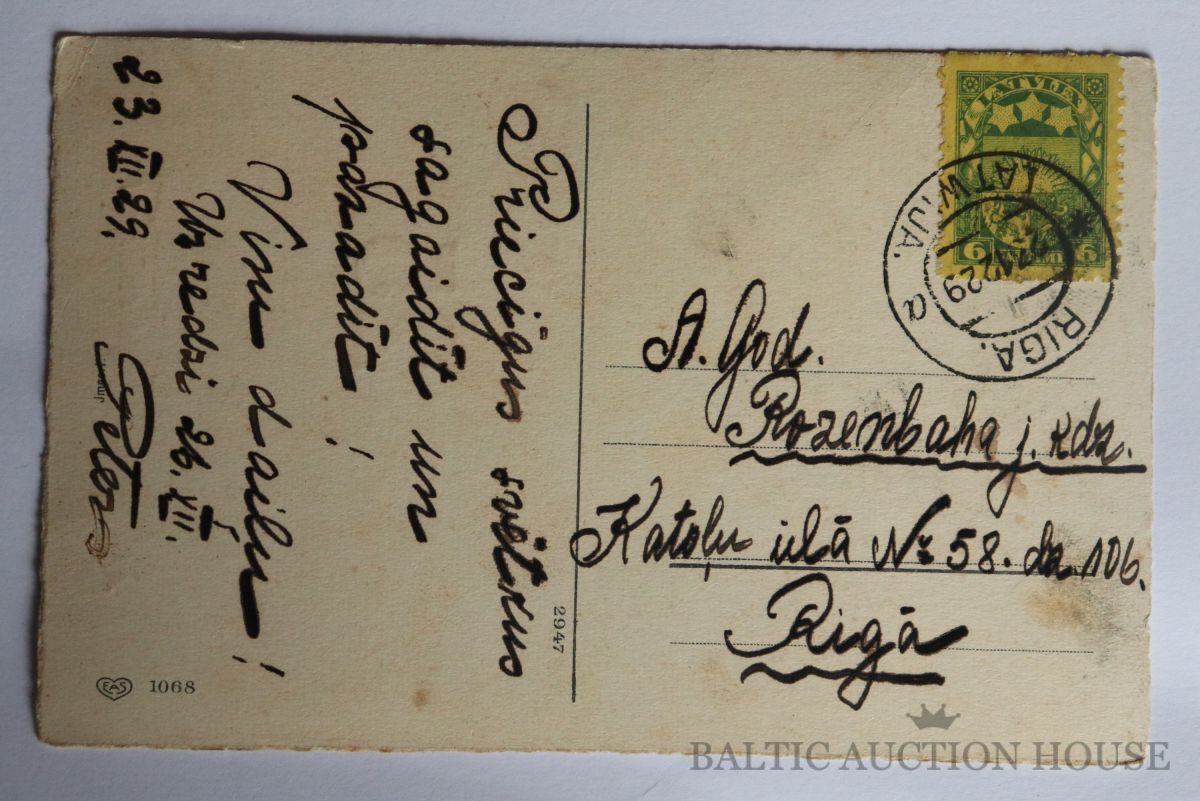 Priecīgus svētkus
sagaidīt un
pavadīt!
Visu dailu!
Uz redzi 26.XII.
23.XII.29.
A. God.
Rozenbaha j. kdz.
Katoļu ielā № 58. dz. 106.
Rigā
LATVIJA
6 6
RIGA. LATWIJA. a
12 29
2947
EAS 1068
BALTIC AUCTION HOUSE